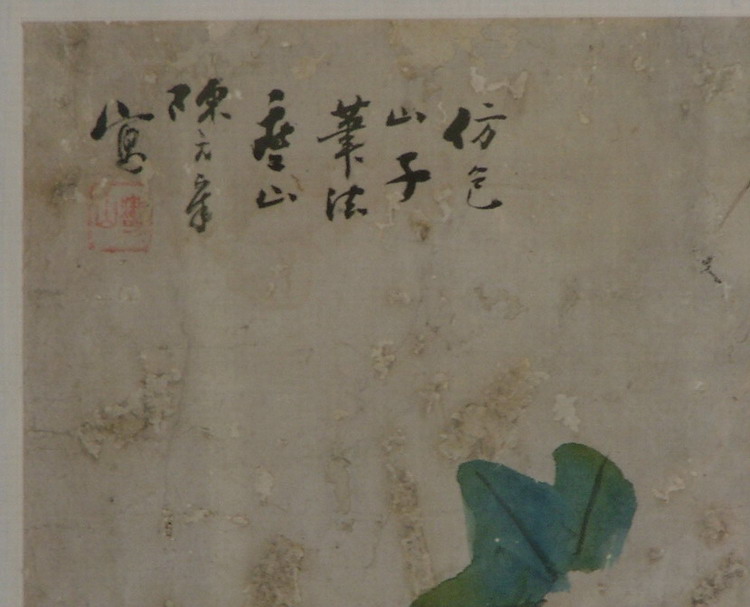 仿包
山子
筆法
山
陳元章
寫